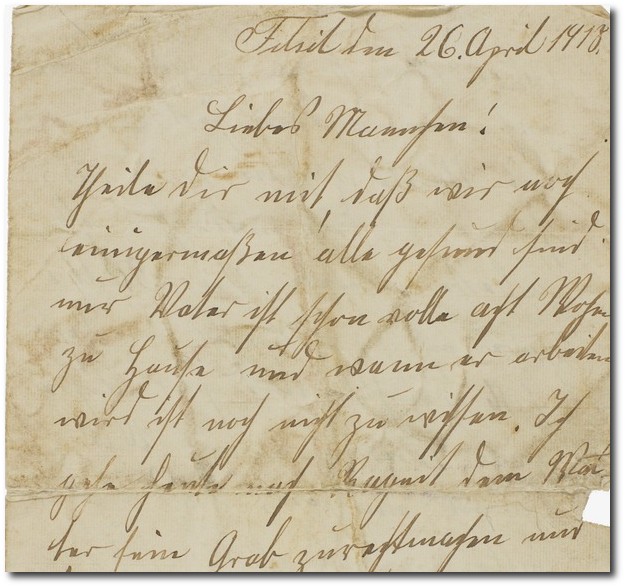 Tilsit den 26. April 1918.
Liebes Mannchen!
Theile dir mit, daß wir noch
einigermaßen alle gesund sind.
nur Vater ist schon volle acht Wochen
zu Hause und wann er arbeiten
wird ist noch nicht zu wissen. Ich
gehe heute nach Ragnit dem Wal-
ter sein Grab zurechtmachen und